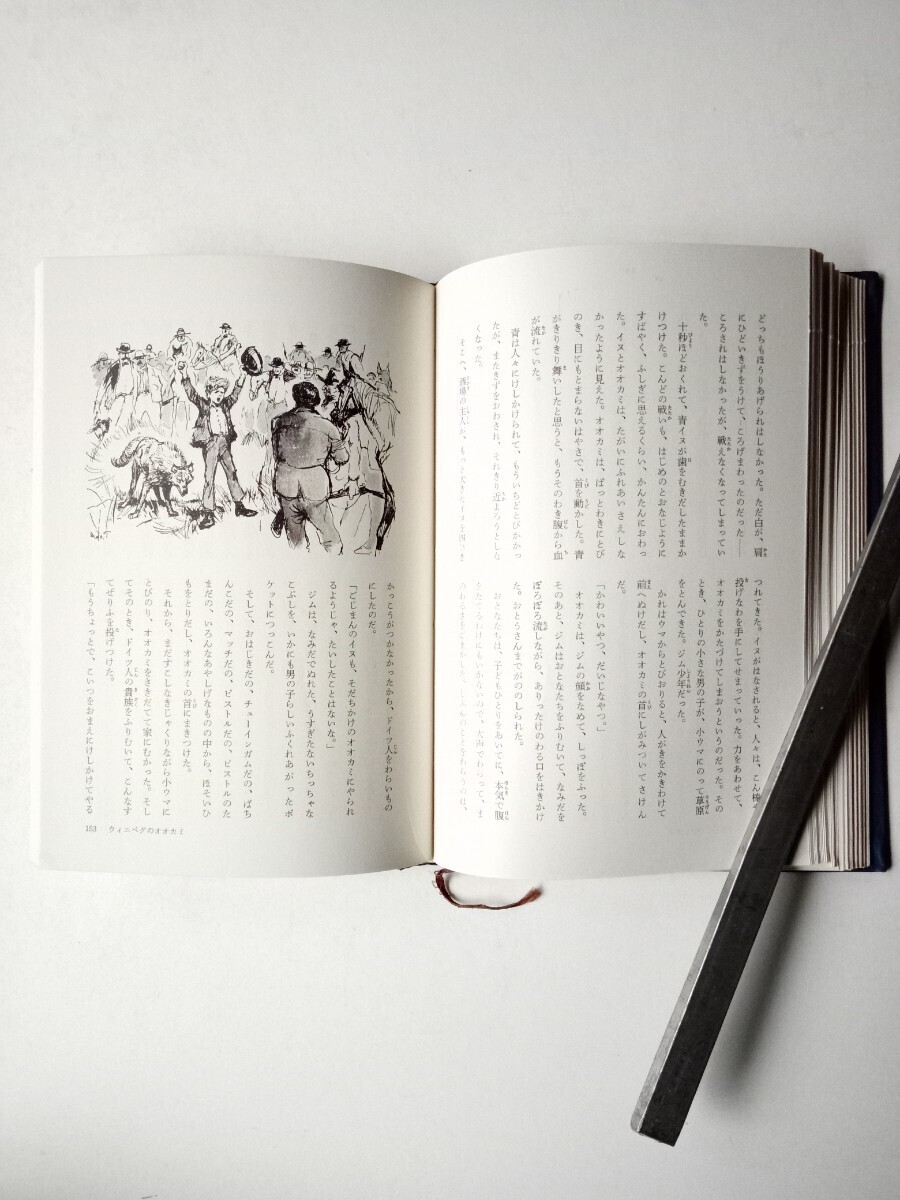 どっちもほうりあげられはしなかった。ただ白が、肩
にひどいきずをうけて、ころげまわったのだった――
ころされはしなかったが、戦えなくなってしまってい
た。
十秒ほどおくれて、青イヌが歯をむきだしたままか
けつけた。こんどの戦いも、はじめのとおなじように
すばやく、ふしぎに思えるくらい、かんたんにおわっ
た。イヌとオオカミは、たがいにふれあいさえしな
かったように見えた。オオカミは、ぱっとわきにとび
のき、目にもとまらないはやさで、首を動かした。青
がきりきり舞いしたと思うと、もうそのわき腹から血
が流れていた。
青は人々にけしかけられて、もういちどとびかかっ
たが、またきずをおわされ、それきり近よろうとしな
くなった。
そこへ、酒場の主人が、もっと大きいイヌを四ひき
つれてきた。イヌがはなされると、人々は、こん棒や
投げなわを手にしてせまっていった。力をあわせて、
オオカミをかたづけてしまおうというのだった。その
とき、ひとりの小さな男の子が、小ウマにのって草原
をとんできた。ジム少年だった。
かれはウマからとびおりると、人がきをかきわけて
前へぬけだし、オオカミの首にしがみついてさけん
だ。
「かわいいやつ、だいじなやつ。」
オオカミは、ジムの顔をなめて、しっぽをふった。
そのあと、ジムはおとなたちをふりむいて、なみだを
ぼろぼろ流しながら、ありったけのわる口をはきかけ
た。おとうさんまでがののしられた。
おとなたちは、子どもひとりをあいてに、本気で腹
をたてるわけにもいかないので、大声でわらって、ま
かっこうがつかなかったから、ドイツ人をわらいもの
にしたのだ。
「ごじまんのイヌも、そだちかけのオオカミにやられ
るようじゃ、たいしたことはないな。」
ジムは、なみだでぬれた、うすぎたないちっちゃな
こぶしを、いかにも男の子らしいふくれあがったポ
ケットにつっこんだ。
そして、おはじきだの、チューインガムだの、ぱち
んこだの、マッチだの、ピストルだの、ピストルのた
まだの、いろんなあやしげなものの中から、ほそいひ
もをとりだし、オオカミの首にまきつけた。
それから、まだすこしなきじゃくりながら小ウマに
とびのり、オオカミをさきだてて家にむかった。そし
てそのとき、ドイツ人の貴族をふりむいて、こんなす
てぜりふを投げつけた。
「もうちょっとで、こいつをおまえにけしかけてやる
153 ウィニペグのオオカミ